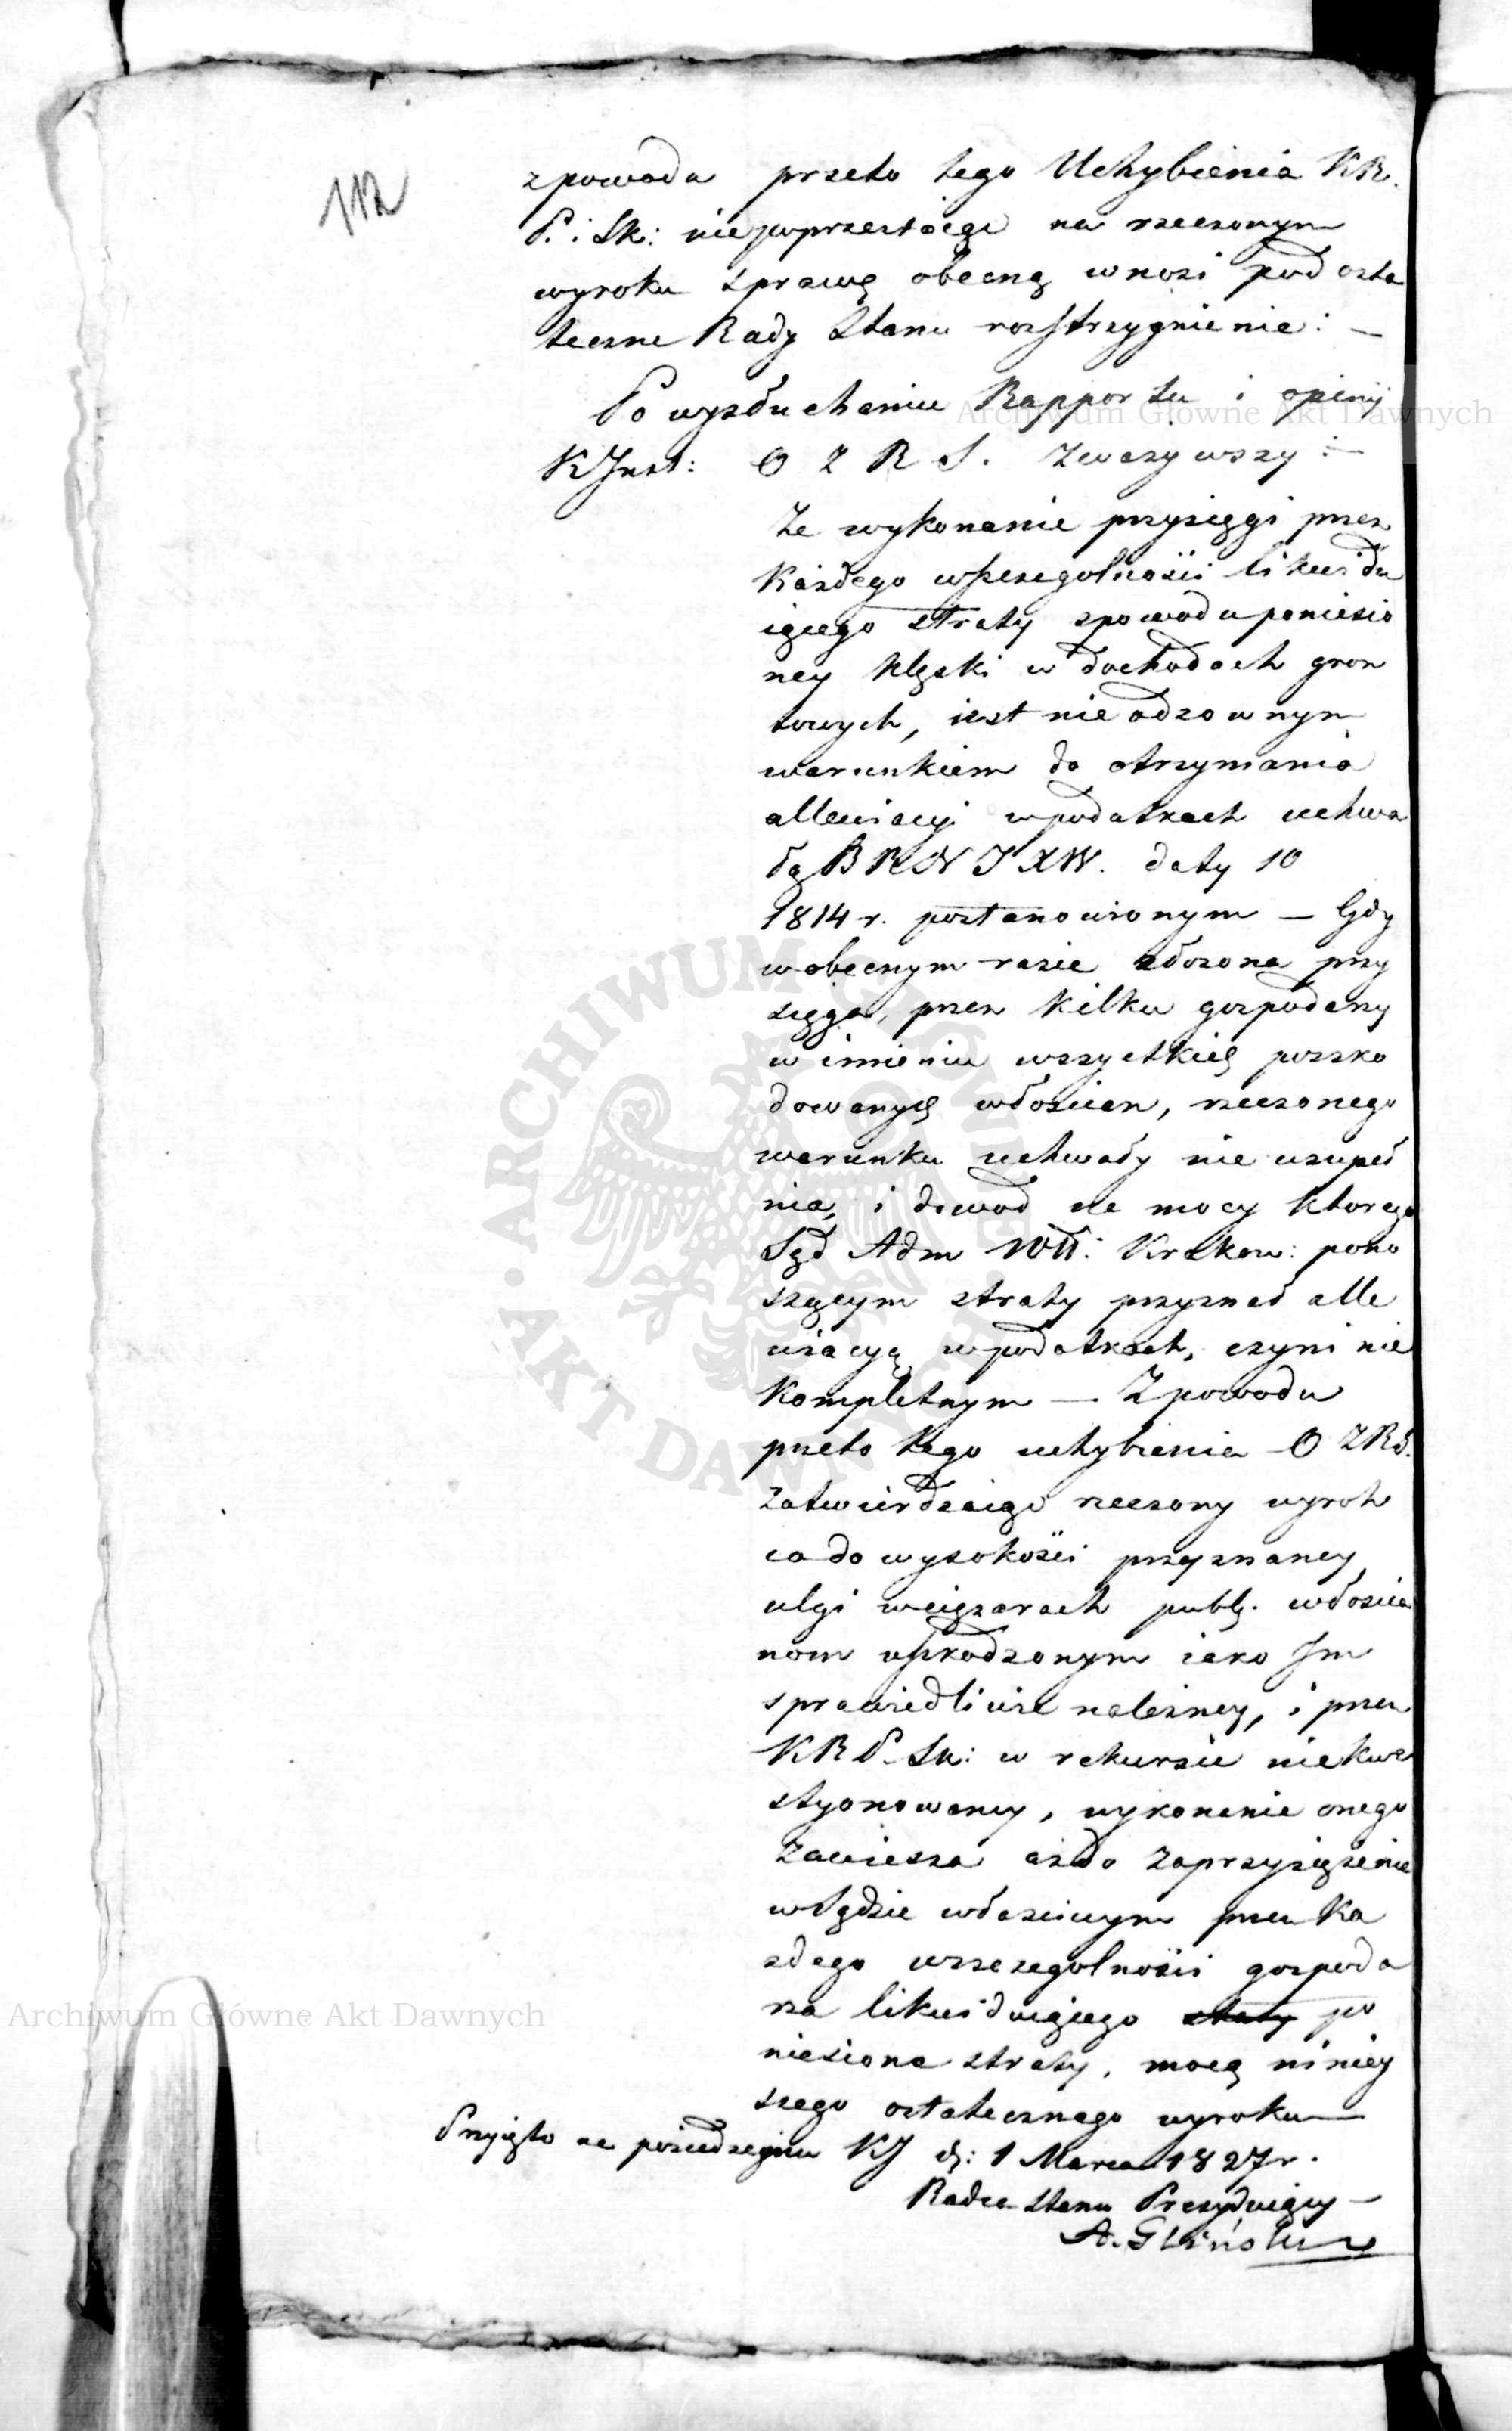 112
zpowodu przeto tego Uchybienia KR.
P. i Sk: niepoprzestaiąc na rzeczonym
wyroku sprawę obecną wnosi pod osta
teczne Rady Stanu rozstrzygnienie: —
Po wysłuchaniu Rapportu i opinij
KInst: O Z R S. Zważywszy: —
Że wykonanie przysięgi przez
Każdego wszczegolności likwidu
iącego straty zpowodu poniesio
ney klęski w dochodach gron
towych, iest nieodzownym
warunkiem do otrzymania
allewiacyi wpodatkach uchwa
łą BRNTXW. daty 10
1814 r. postanowionym — Gdy
wobecnym razie złożona przy
sięga, przez kilku gospodarzy
w imieniu wszystkich poszko
dowanych włościan, rzeczonego
warunku uchwały nie uzupeł
nia, i dowod na mocy ktorego
Sąd Adm Wtt: Krakow: pono
szącym straty przyznał alle
wiacyą wpodatkach, czyni nie
kompletnym — Z powodu
przeto tego uchybienia O Z R S.
zatwierdzaiąc rzeczony wyrok
co do wysokości przyznaney
ulgi wciężarach publ. włościa
nom uszkodzonym iako Im
sprawiedliwie należney, i przez
KRP. Sk: w rekursie niekwe
styonowaney, wykonanie onego
zawiesza aż do zaprzysiężenia
wSądzie właściwym przez Ka
żdego wszczegolności gospoda
rza likwiduiącego straty po
niesione straty, mocą niniey
szego ostatecznego wyroku —
Przyięto na posiedzeniu KJ d: 1 Marca 1827 r.
Radca Stanu Prezyduiący —
A. Gliński
Archiwum Główne Akt Dawnych
ARCHIWUM GŁÓWNE AKT DAWNYCH
Archiwum Główne Akt Dawnych